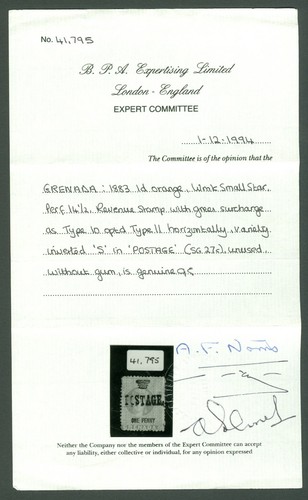 No. 41,795
B. P. A. Expertising Limited
London - England
EXPERT COMMITTEE
1-12-1994
The Committee is of the opinion that the
GRENADA: 1883 1d orange, Wmk Small Star,
Perf 14½, Revenue Stamp with green surcharge
as Type 10 optd Type 11 horizontally, variety
inverted 'S' in 'POSTAGE' (SG.27c), unused
without gum, is genuine
41,795
POSTAGE
ONE PENNY
Neither the Company nor the members of the Expert Committee can accept
any liability, either collective or individual, for any opinion expressed